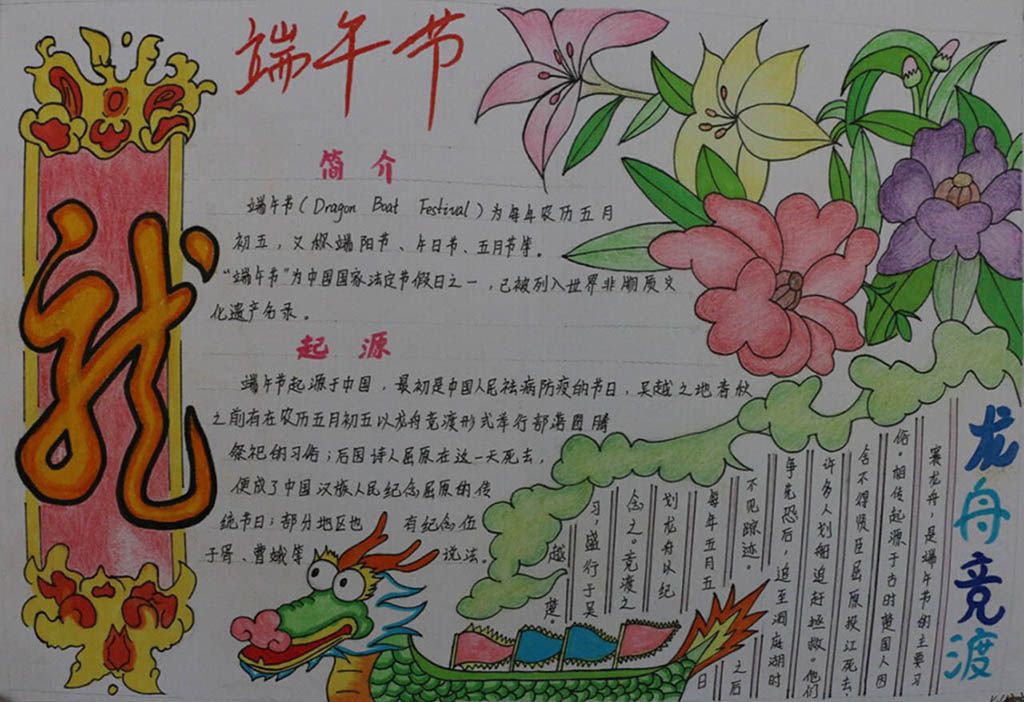 端午节
龙
简介
端午节（Dragon Boat Festival）为每年农历五月
初五，又称端阳节、午日节、五月节等。
“端午节”为中国国家法定节假日之一，已被列入世界非物质文
化遗产名录。
起源
端午节起源于中国，最初是中国人民祛病防疫的节日，吴越之地春秋
之前有在农历五月初五以龙舟竞渡形式举行部落图腾
祭祀的习俗；后因诗人屈原在这一天死去，
便成了中国汉族人民纪念屈原的传
统节日；部分地区也 有纪念伍
子胥、曹娥等 说法。
龙舟竞渡
赛龙舟，是端午节的主要习
俗。相传起源于古时楚国人因
舍不得贤臣屈原投江死去，
许多人划船追赶拯救。他们
争先恐后，追至洞庭湖时
不见踪迹。 之后
每年五月五 日
划龙舟以纪
念之。竞渡之
习，盛行于吴
越 楚。